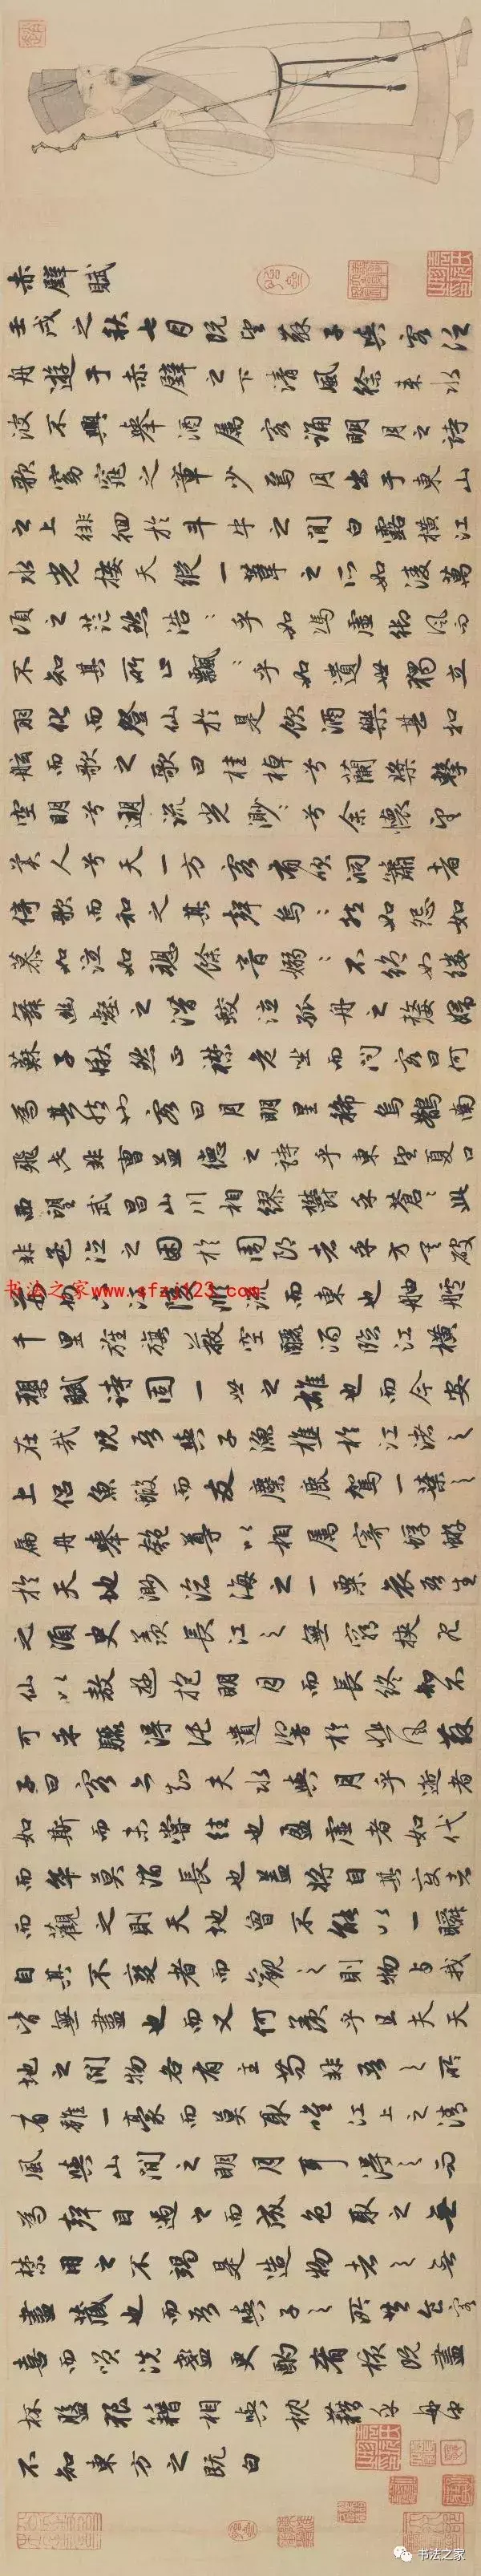 赤壁賦
壬戌之秋七月既望蘇子與客泛
舟遊于赤壁之下清風徐來水
波不興舉酒屬客誦明月之詩
歌窈窕之章少焉月出于東山
之上徘徊於斗牛之間白露橫江
水光接天縱一葦之所如淩萬
頃之茫然浩〻乎如馮虛御風而
不知其所止飄〻乎如遺世獨立
羽化而登仙於是飲酒樂甚扣
舷而歌之歌曰桂棹兮蘭槳擊
空明兮遡流光渺〻兮余懷望
美人兮天一方客有吹洞簫者
倚歌而和之其聲烏〻然如怨如
慕如泣如訴餘音嫋〻不絕如縷
舞幽壑之潛蛟泣孤舟之嫠婦
蘇子愀然正襟危坐而問客曰何
為其然也客曰月明星稀烏鵲南
飛此非曹孟德之詩乎東望夏口
西望武昌山川相繆鬱乎蒼〻此
非孟德之困於周郎者乎方其破
書法之家www.sfzj123.com
流而東也舳艫
千里旌旗蔽空釃酒臨江橫
槊賦詩固一世之雄也而今安
在哉況吾與子漁樵於江渚之
上侶魚蝦而友麋鹿駕一葉之
扁舟舉匏尊以相屬寄蜉蝣
於天地渺滄海之一粟哀吾生
之須臾羨長江之無窮挾飛
仙以遨遊抱明月而長終知不
可乎驟得托遺響於悲風蘇
子曰客亦知夫水與月乎逝者
如斯而未嘗往也盈虛者如代
而卒莫消長也蓋將自其變者
而觀之則天地曾不能以一瞬
自其不變者而觀之則物與我
皆無盡也而又何羨乎且夫天
地之間物各有主苟非吾之所
有雖一毫而莫取唯江上之清
風與山間之明月耳得之而
為聲目遇之而成色取之無
禁用之不竭是造物者之無
盡藏也而吾與子之所共食客
喜而笑洗盞更酌肴核既盡
杯盤狼籍相與枕藉乎舟中
不知東方之既白
书法之家